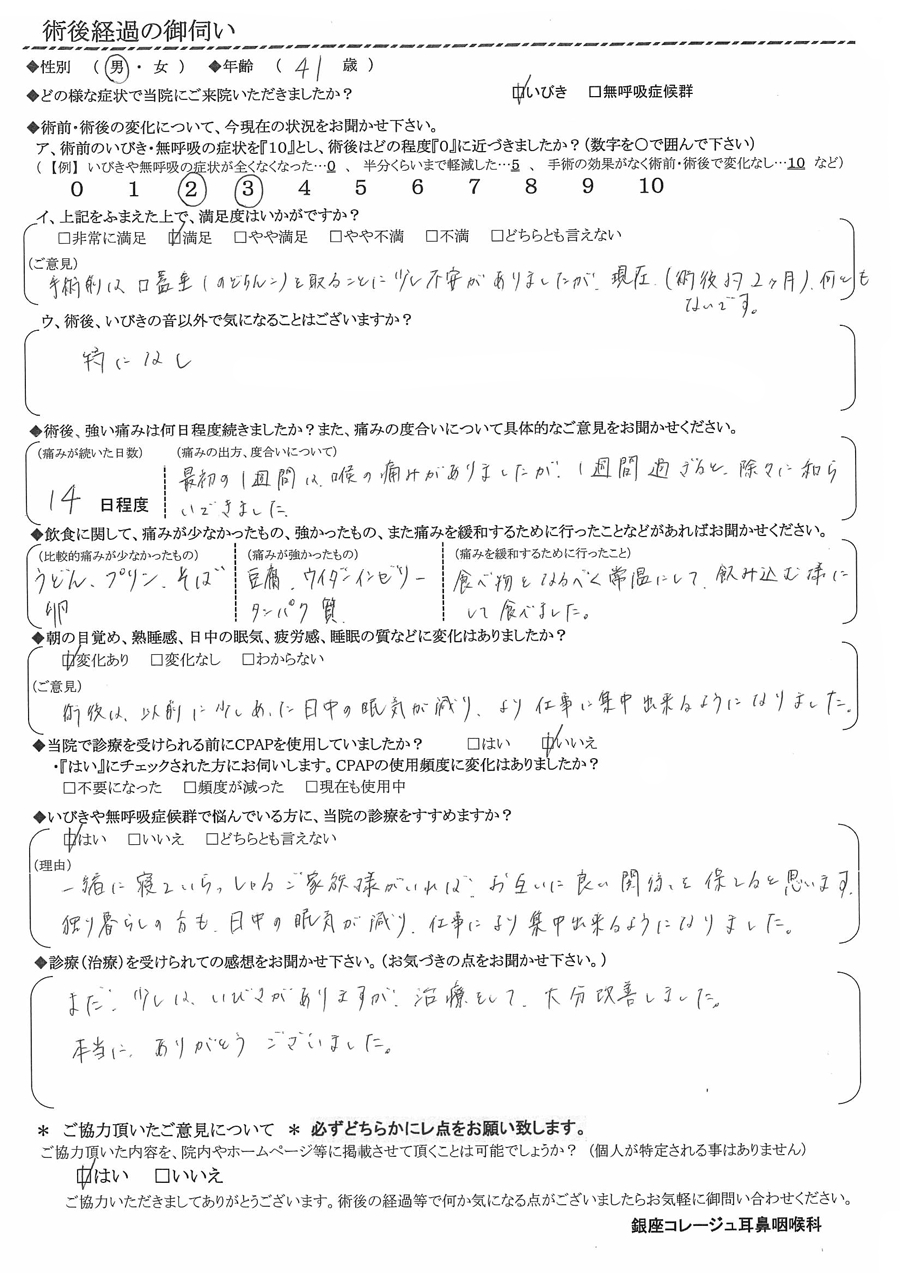 術後経過の御伺い
◆性別 （ 男 ・ 女 ） ◆年齢 （ 41 歳 ）
◆どの様な症状で当院にご来院いただきましたか？ ☑いびき □無呼吸症候群
◆術前・術後の変化について、今現在の状況をお聞かせ下さい。
ア、術前のいびき・無呼吸の症状を『10』とし、術後はどの程度『0』に近づきましたか？（数字を○で囲んで下さい）
（ 【例】 いびきや無呼吸の症状が全くなくなった…0 、 半分くらいまで軽減した…5 、 手術の効果がなく術前・術後で変化なし…10 など）
0 1 2 3 4 5 6 7 8 9 10
イ、上記をふまえた上で、満足度はいかがですか？
□非常に満足 ☑満足 □やや満足 □やや不満 □不満 □どちらとも言えない
（ご意見）
手術前は、口蓋垂（のどちんこ）を取ることに少し不安がありましたが、現在、（術後約2ヶ月）、何とも
ないです。
ウ、術後、いびきの音以外で気になることはございますか？
特になし
◆術後、強い痛みは何日程度続きましたか？また、痛みの度合いについて具体的なご意見をお聞かせください。
（痛みが続いた日数） （痛みの出方、度合いについて）
最初の1週間は、喉の痛みがありましたが、1週間過ぎると、除々に和ら
14 日程度 いできました。
◆飲食に関して、痛みが少なかったもの、強かったもの、また痛みを緩和するために行ったことなどがあればお聞かせください。
（比較的痛みが少なかったもの） （痛みが強かったもの） （痛みを緩和するために行ったこと）
うどん、プリン、そば 豆腐、ウイダーインゼリー 食べ物をなるべく常温にして、飲み込む様に
卵 タンパク質 して食べました。
◆朝の目覚め、熟睡感、日中の眠気、疲労感、睡眠の質などに変化はありましたか？
☑変化あり □変化なし □わからない
（ご意見）
術後は、以前に少しあった日中の眠気が減り、より仕事に集中出来るようになりました。
◆当院で診療を受けられる前にCPAPを使用していましたか？ □はい ☑いいえ
・『はい』にチェックされた方にお伺いします。CPAPの使用頻度に変化はありましたか？
□不要になった □頻度が減った □現在も使用中
◆いびきや無呼吸症候群で悩んでいる方に、当院の診療をすすめますか？
☑はい □いいえ □どちらとも言えない
（理由）
一緒に寝ていらっしゃるご家族様がいれば、お互いに良い関係を保てると思います。
独り暮らしの方も、日中の眠気が減り、仕事により集中出来るようになりました。
◆診療（治療）を受けられての感想をお聞かせ下さい。（お気づきの点をお聞かせ下さい。）
まだ、少しは、いびきがありますが、治療をして、大分改善しました。
本当に、ありがとうございました。
＊ ご協力頂いたご意見について ＊ 必ずどちらかにレ点をお願い致します。
ご協力頂いた内容を、院内やホームページ等に掲載させて頂くことは可能でしょうか？ （個人が特定される事はありません）
☑はい □いいえ
ご協力いただきましてありがとうございます。術後の経過等で何か気になる点がございましたらお気軽に御問い合わせください。
銀座コレージュ耳鼻咽喉科